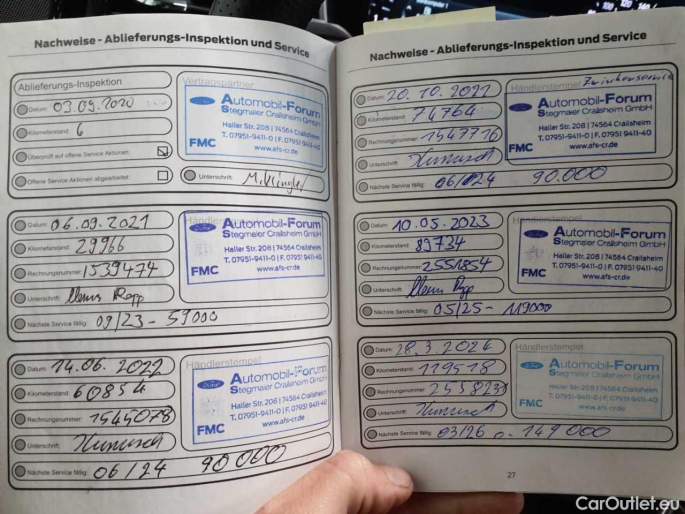 Nachweise - Ablieferungs-Inspektion und Service
Ablieferungs-Inspektion
Datum: 03.09.2020
Kilometerstand: 6
Überprüft auf offene Service Aktionen:
Offene Service Aktionen abgearbeitet:
Vertragspartner
Ford
Automobil-Forum
Stegmaier Crailsheim GmbH
Haller Str. 208 | 74564 Crailsheim
T. 07951-9411-0 | F. 07951-9411-40
www.afs-cr.de
FMC
Unterschrift:
Datum: 06.09.2021
Kilometerstand: 29966
Rechnungsnummer: 1539474
Unterschrift:
Nächste Service fällig: 09/23 - 59000
Händlerstempel
Ford
Automobil-Forum
Stegmaier Crailsheim GmbH
Haller Str. 208 | 74564 Crailsheim
T. 07951-9411-0 | F. 07951-9411-40
www.afs-cr.de
FMC
Datum: 14.06.2022
Kilometerstand: 60854
Rechnungsnummer: 1545078
Unterschrift:
Nächste Service fällig: 06/24 90 000
Händlerstempel
Ford
Automobil-Forum
Stegmaier Crailsheim GmbH
Haller Str. 208 | 74564 Crailsheim
T. 07951-9411-0 | F. 07951-9411-40
www.afs-cr.de
FMC
Nachweise - Ablieferungs-Inspektion und Service
Datum: 20.10.2021
Kilometerstand: 74764
Rechnungsnummer: 1547716
Unterschrift
Nächste Service fällig: 06/24 90.000
Händlerstempel Zwischenservice
Ford
Automobil-Forum
Stegmaier Crailsheim GmbH
Haller Str. 208 | 74564 Crailsheim
T. 07951-9411-0 | F. 07951-9411-40
www.afs-cr.de
FMC
Datum: 10.05.2023
Kilometerstand: 89734
Rechnungsnummer: 2551854
Unterschrift:
Nächste Service fällig: 05/25 - 119000
Händlerstempel
Ford
Automobil-Forum
Stegmaier Crailsheim GmbH
Haller Str. 208 | 74564 Crailsheim
T. 07951-9411-0 | F. 07951-9411-40
www.afs-cr.de
FMC
Datum: 28.3.2024
Kilometerstand: 119518
Rechnungsnummer:
Unterschrift
Nächste Service fällig: 03/26 o. 149 000
Händlerstempel
Ford
Automobil-Forum
Stegmaier Crailsheim GmbH
Haller Str. 208 | 74564 Crailsheim
T. 07951-9411-0 | F. 07951-9411-40
www.afs-cr.de
FMC
27
CarOutlet.eu